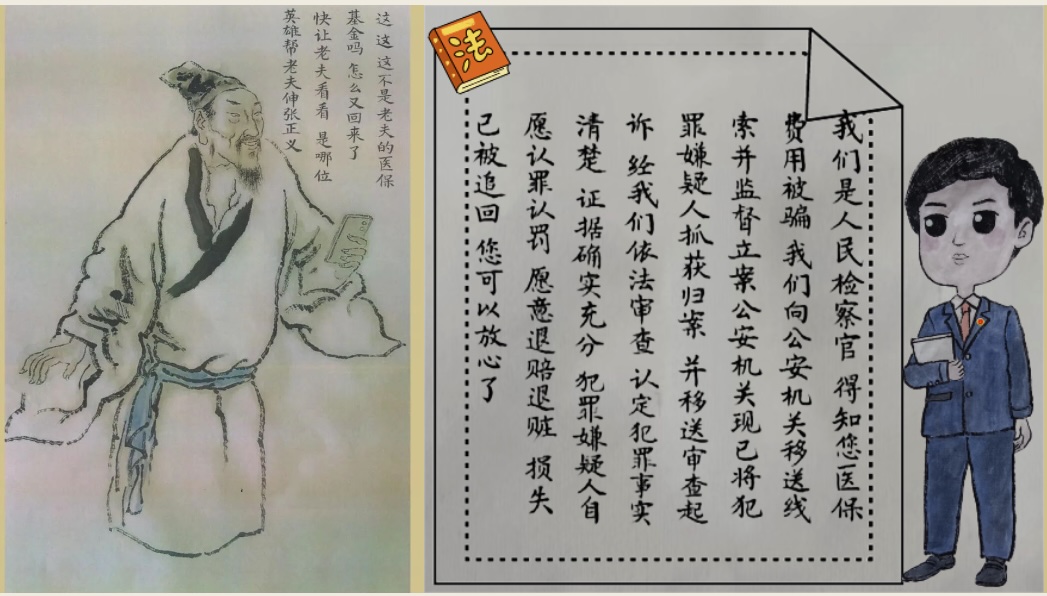 这 这 这不是老夫的医保
基金吗 怎么又回来了
快让老夫看看 是哪位
英雄帮老夫伸张正义
法
我们是人民检察官 得知您医保
费用被骗 我们向公安机关移送线
索并监督立案 公安机关现已将犯
罪嫌疑人抓获归案 并移送审查起
诉 经我们依法审查 认定犯罪事实
清楚 证据确实充分 犯罪嫌疑人自
愿认罪认罚 愿意退赔退赃 损失
已被追回 您可以放心了